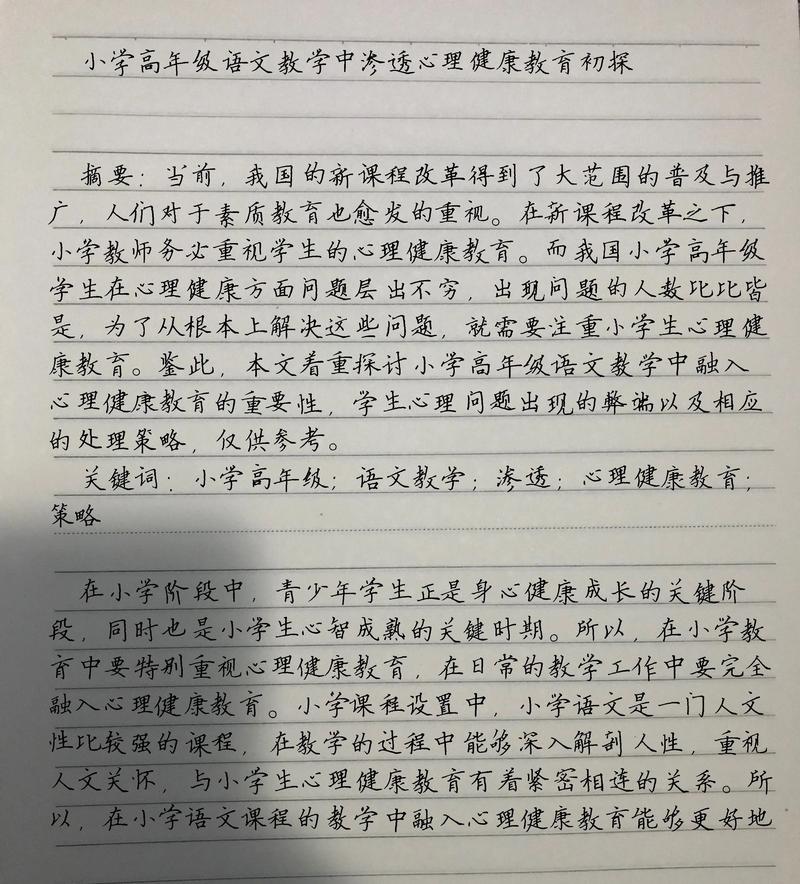 小学高年级语文教学中渗透心理健康教育初探
摘要：当前，我国的新课程改革得到了大范围的普及与推
广，人们对于素质教育也愈发的重视。在新课程改革之下，
小学教师务必重视学生的心理健康教育。而我国小学高年级
学生在心理健康方面问题层出不穷，出现问题的人数比比皆
是，为了从根本上解决这些问题，就需要注重小学生心理健
康教育。鉴此，本文着重探讨小学高年级语文教学中融入
心理健康教育的重要性，学生心理问题出现的弊端以及相应
的处理策略，仅供参考。
关键词：小学高年级；语文教学；渗透；心理健康教育；
策略
在小学阶段中，青少年学生正是身心健康成长的关键阶
段，同时也是小学生心智成熟的关键时期。所以，在小学教
育中要特别重视心理健康教育，在日常的教学工作中要完全
融入心理健康教育。小学课程设置中，小学语文是一门人文
性比较强的课程，在教学的过程中能够深入解剖人性，重视
人文关怀，与小学生心理健康教育有着紧密相连的关系。所
以，在小学语文课程的教学中融入心理健康教育能够更好地